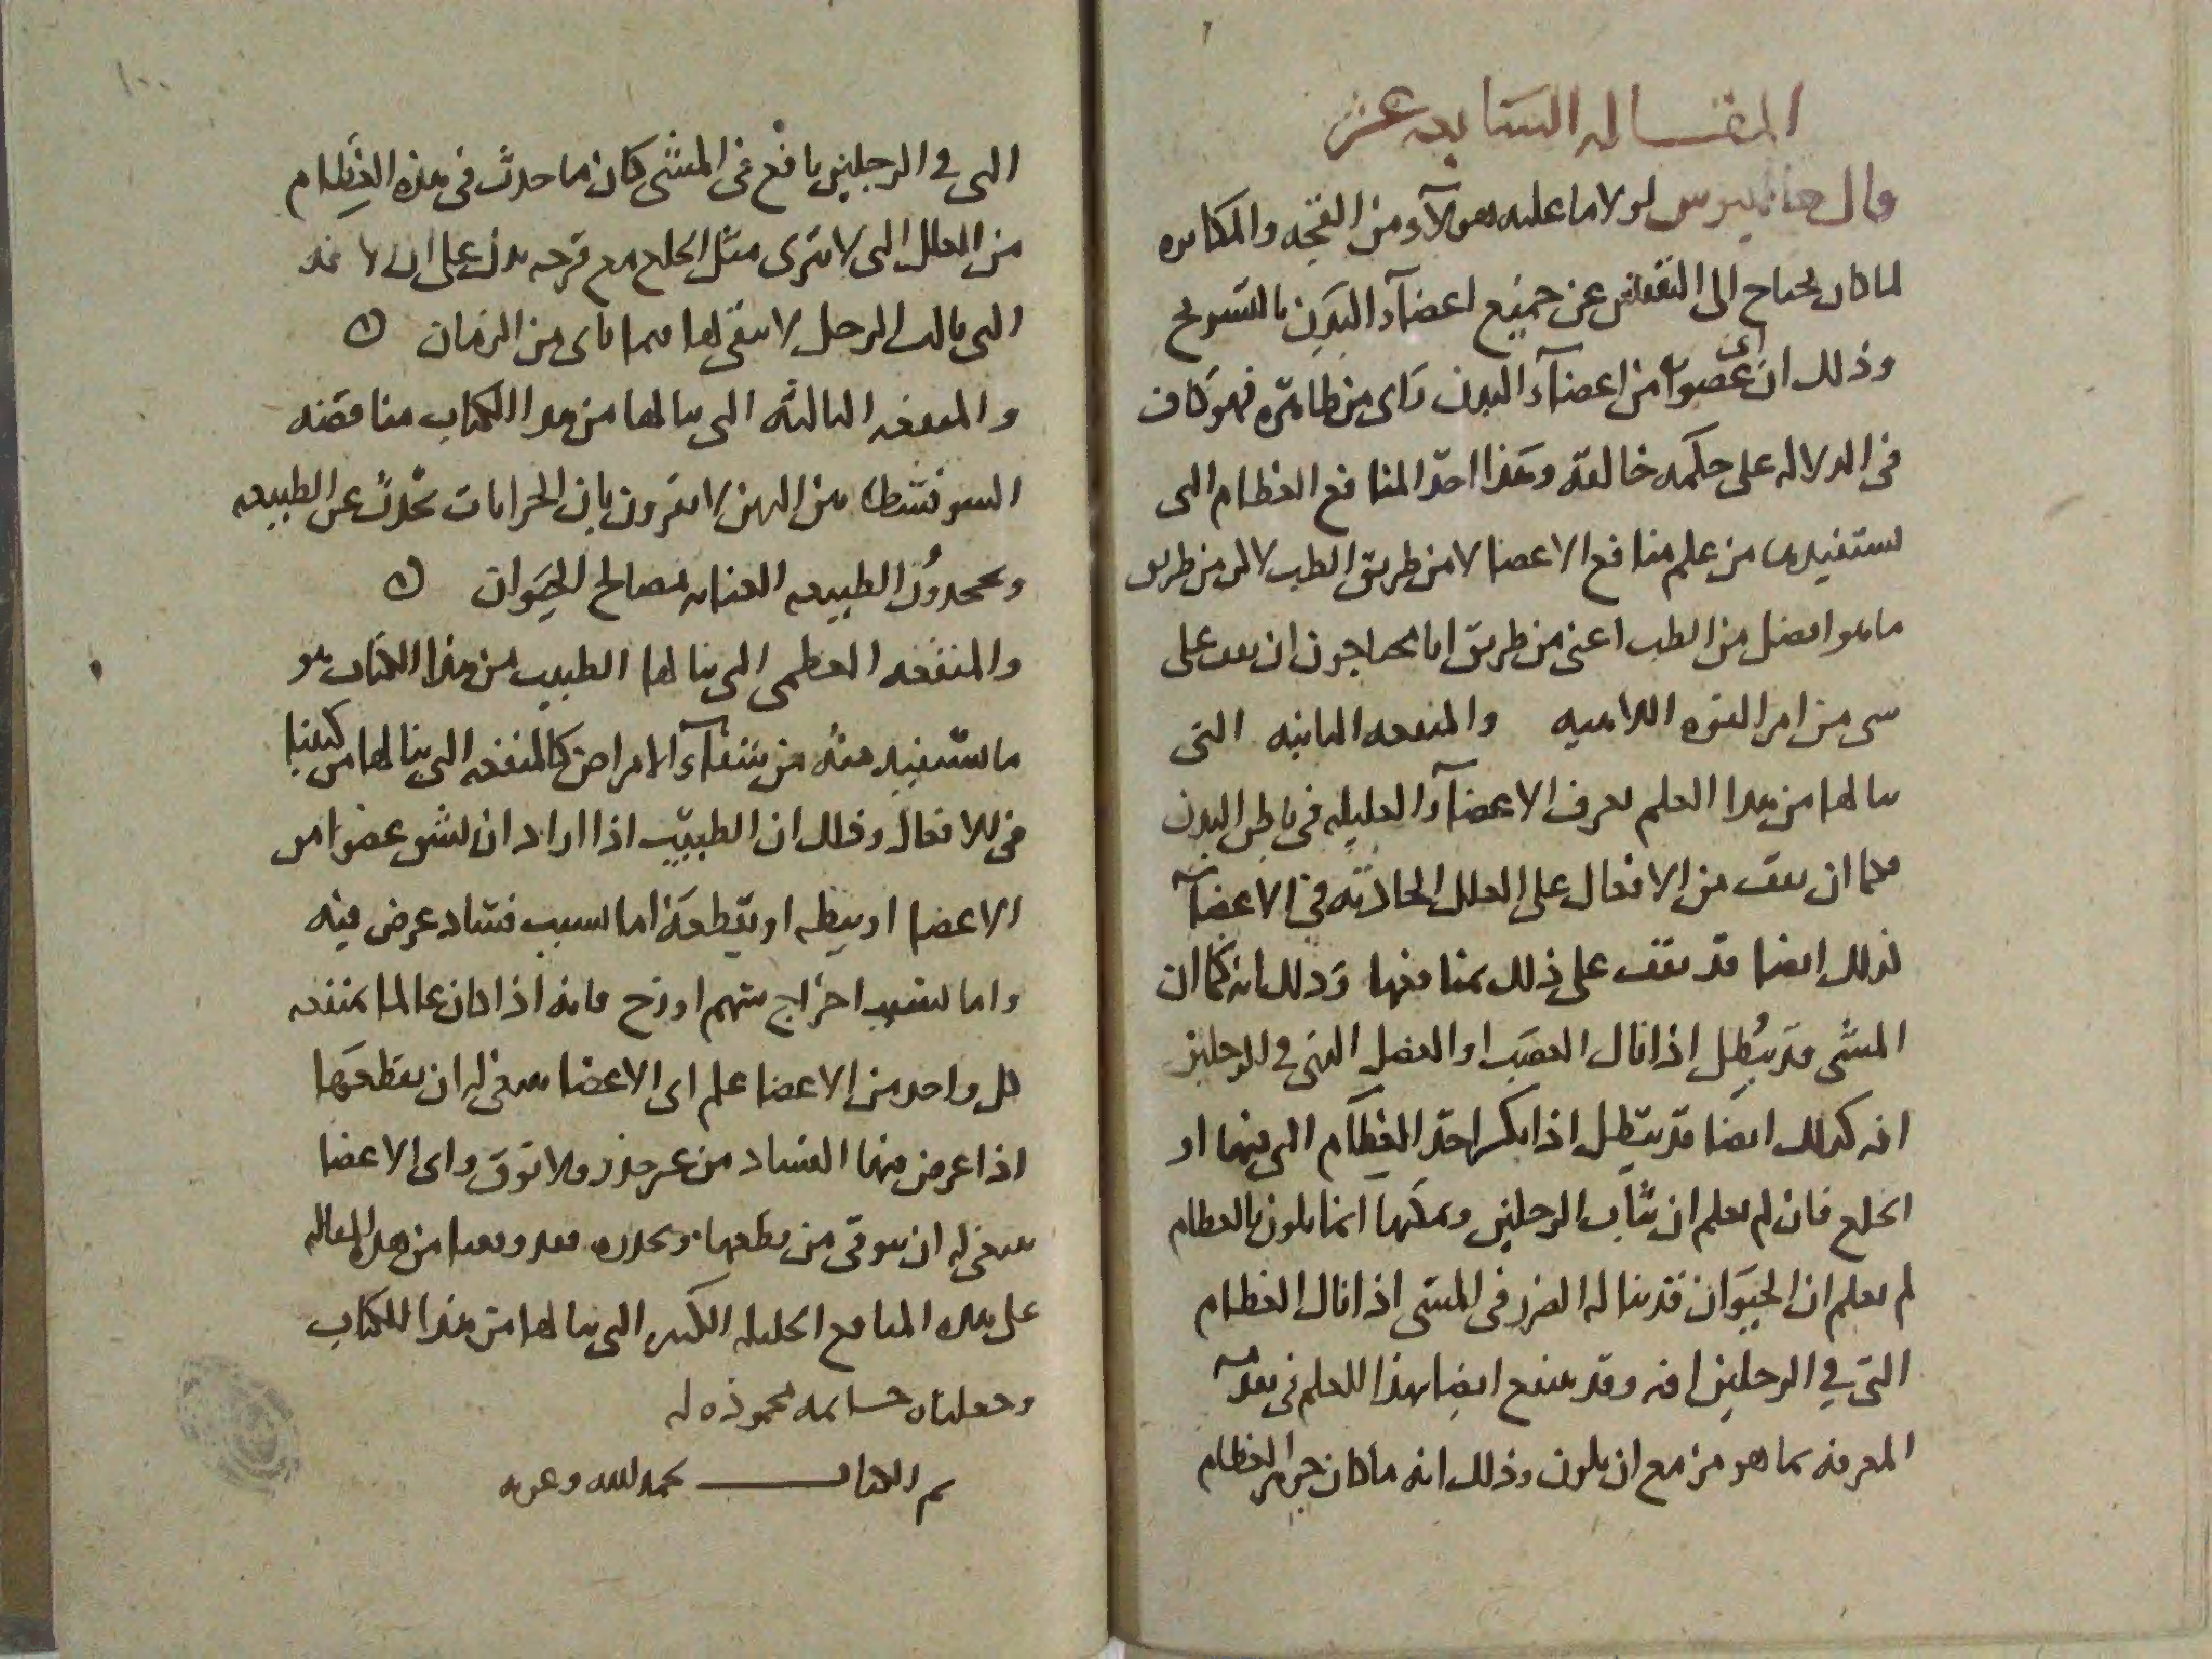 المقاله السابعه عشر
قال جالينوس لولا ما عليه هولآء من القحه والمكابره
لما كان يحتاج الى التفحص عن جميع اعضآء البدن بالتشريح
وذلك ان اى عضوا من اعضآء البدن راى من ظاهره فهو كاف
فى الدلاله على حكمه خالقه وهذا احد المنافع العظام التى
نستفيدها من علم منافع الاعضا لا من طريق الطب لاكن من طريق
ما هو افضل من الطب اعنى من طريق انا محتاجون ان نقف على
شى من امر القوه الالاهيه والمنفعه الثانيه التى
ننالها من هذا العلم تعرف الاعضآء العليله فى باطن البدن
فكما ان نقف من الافعال على العلل الحادثه فى الاعضآء
كذلك ايضا قد نقف على ذلك بمنافعها وذلك انه كما ان
المشى قد يبطل اذا نال العصب او العضل التى فى الرجلين
انه كذلك ايضا قد يبطل اذا انكسر احد العظام التى فيهما او
انخلع فان لم نعلم ان ثبات الرجلين وتمكنها انما يكون بالعظام
لم نعلم ان الحيوان قد يناله الضرر فى المشى اذا نال العظام
التى فى الرجلين افه وقد ينتفع ايضا بهذا العلم فى تقدمه
المعرفه بما هو مزمع ان يكون وذلك انه ما كان جوهر العظام
التى فى الرجلين نافع فى المشى كان ما حدث فى هذه العظام
من العلل التى لا تبرى مثل الخلع مع قرحه يدل على ان الافه
التى نالت الرجل لا ينقى لها فيما ياتى من الزمان
والمنفعه الثالثه التى ننالها من هذا الكتاب مناقضه
السوفسطا من الذين لا يقرون بان الحرايات تحدث عن الطبيعه
ويجحدون الطبيعه العنايه بمصالح الحيوان
والمنفعه العظمى التى ينالها الطبيب من هذا الكتاب هو
ما يستفيده منه من شفآء الامراض كالمنفعه التى ينالها من كتبنا
فى الافعال وذلك ان الطبيب اذا اراد ان يشق عضوا من
الاعضا او يبطه او يقطعه اما بسبب فساد عرض فيه
واما بسبب اخراج سهم او زج فانه اذا كان عالما بمنفعه
كل واحد من الاعضا علم اى الاعضا ينبغى له ان يقطعها
اذا عرض فيها الفساد من غير حذر ولا توق واى الاعضا
ينبغى له ان يتوقى من قطعها ويحذره فقد وقفنا من هذه المقاله
على هذه المنافع الجليله الكبيره التى ننالها من هذا الكتاب
وجعلناه خاتمه محموده له
تم الكتاب بحمد الله وعونه
١٠٠